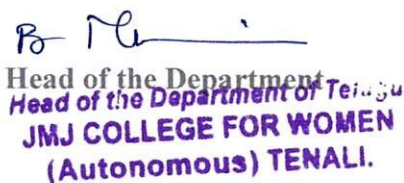 Head of the Department
Head of the Department of Telugu
JMJ COLLEGE FOR WOMEN
(Autonomous) TENALI.